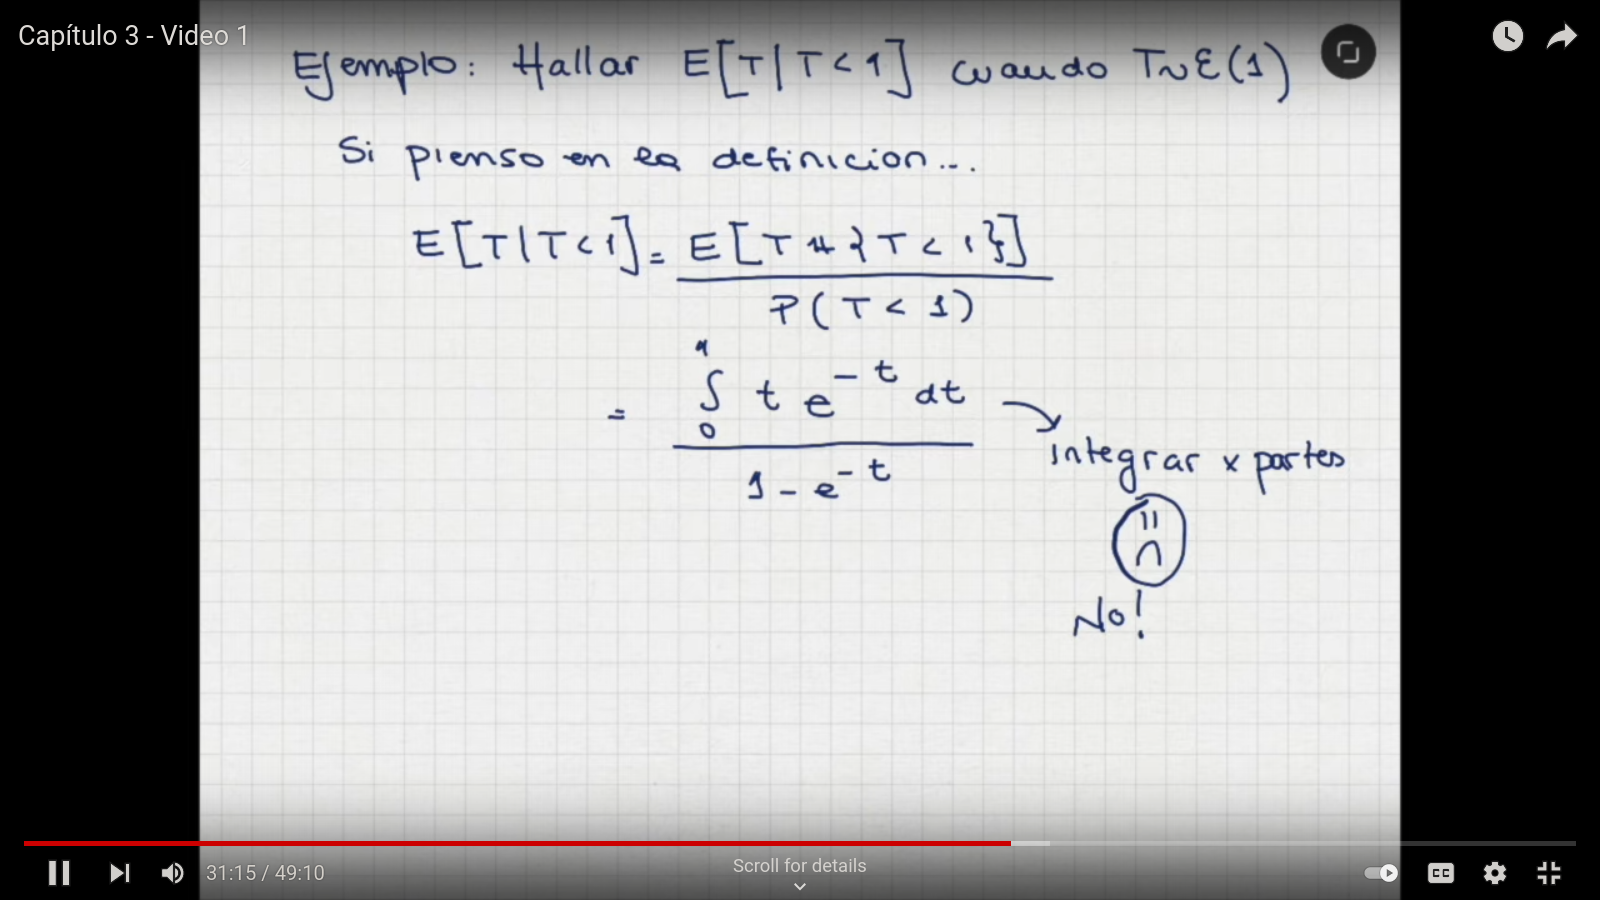 Capítulo 3 - Video 1
Ejemplo: Hallar E[T|T<1] cuando T~ε(1)
Si pienso en la definicion...
E[T|T<1] = E[T 1{T<1}]
P(T<1)
= ∫₀¹ t e^{-t} dt
1 - e^{-t}
integrar x partes
No!
31:15 / 49:10
Scroll for details
CC